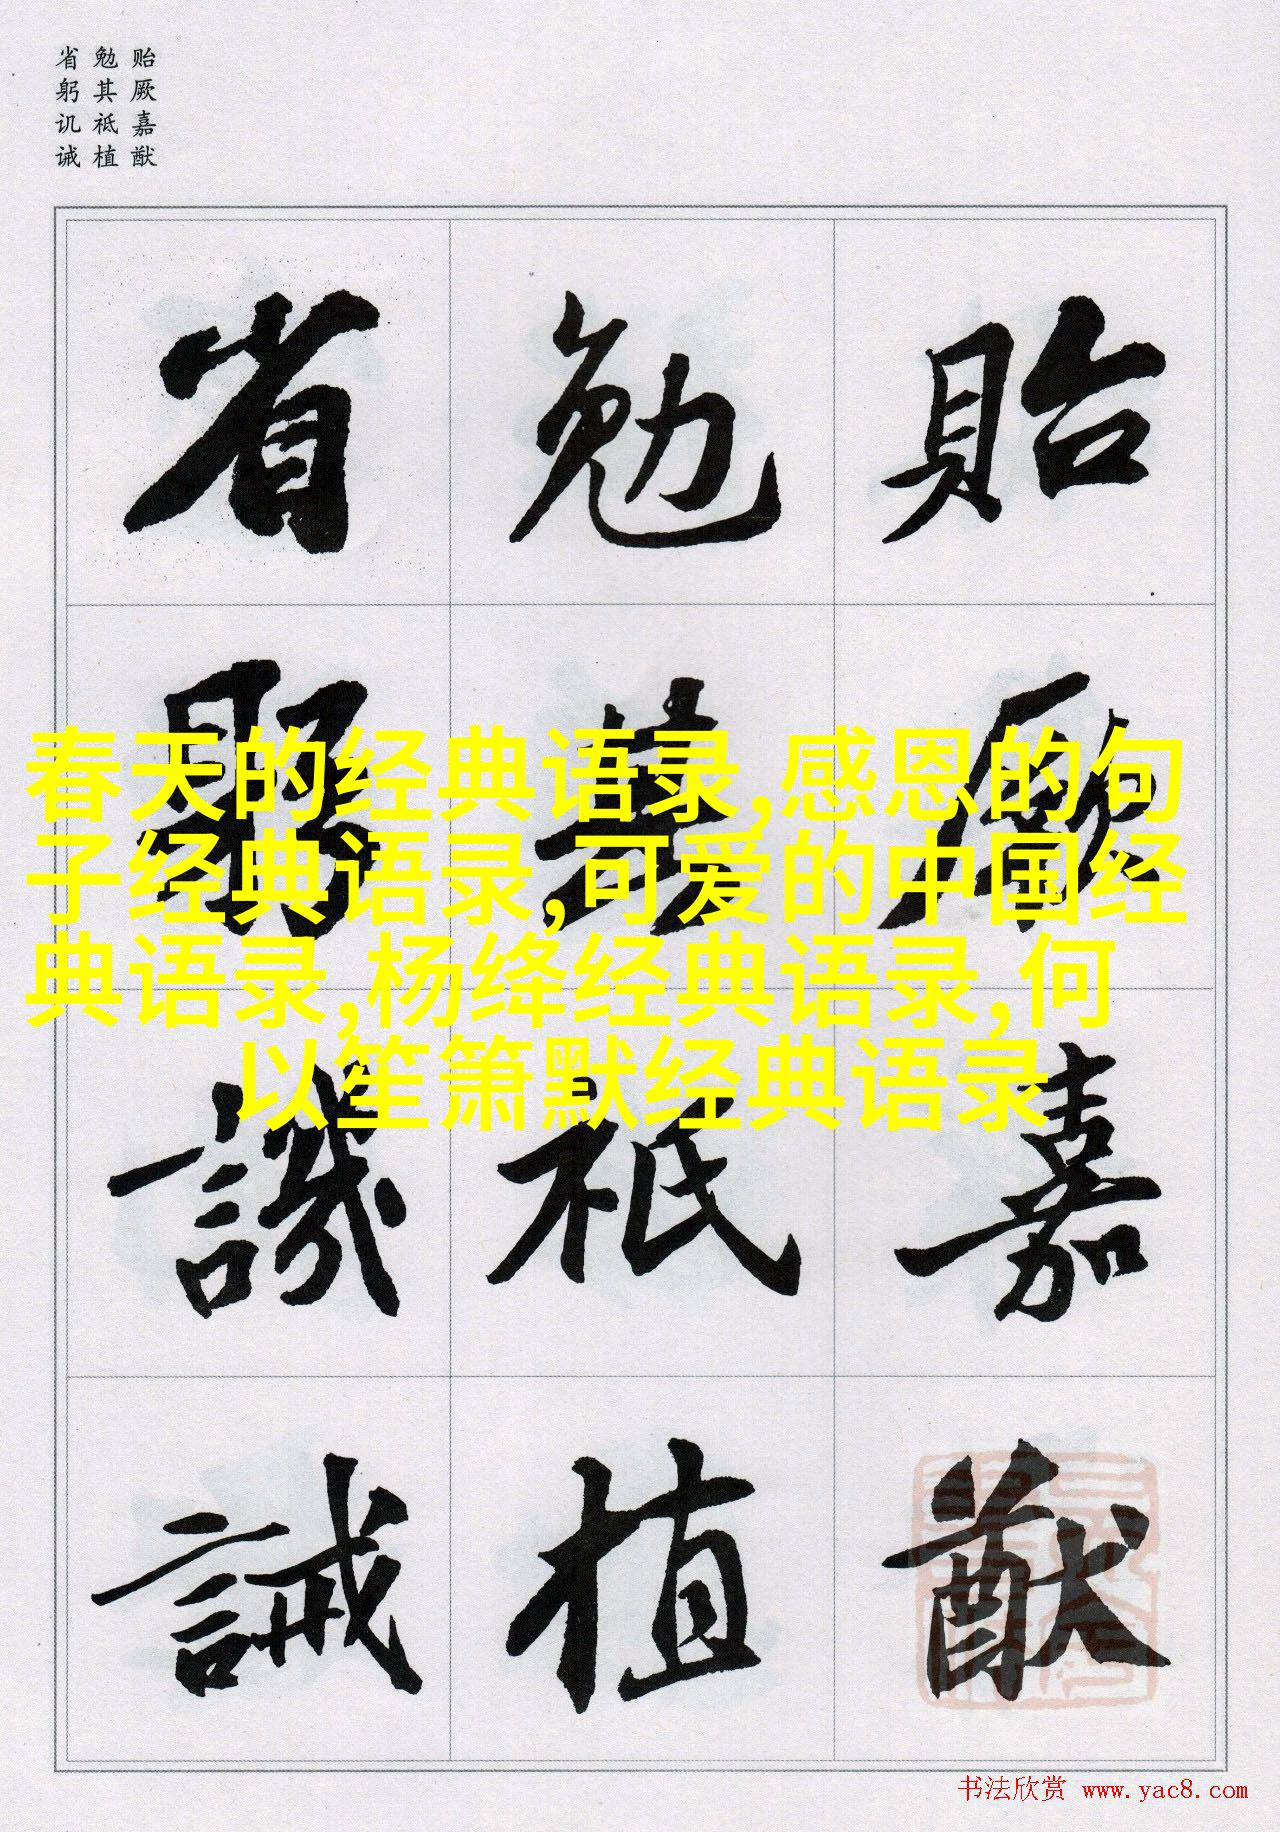 贻厥嘉猷
勉其祗植
省躬讥诫
貽厥嘉猷
勉其祗植
省躬譏誡
春天的经典语录,感恩的句
子经典语录,可爱的中国经
典语录,杨绛经典语录,何
以笙箫默经典语录
书法欣赏 www.yac8.com